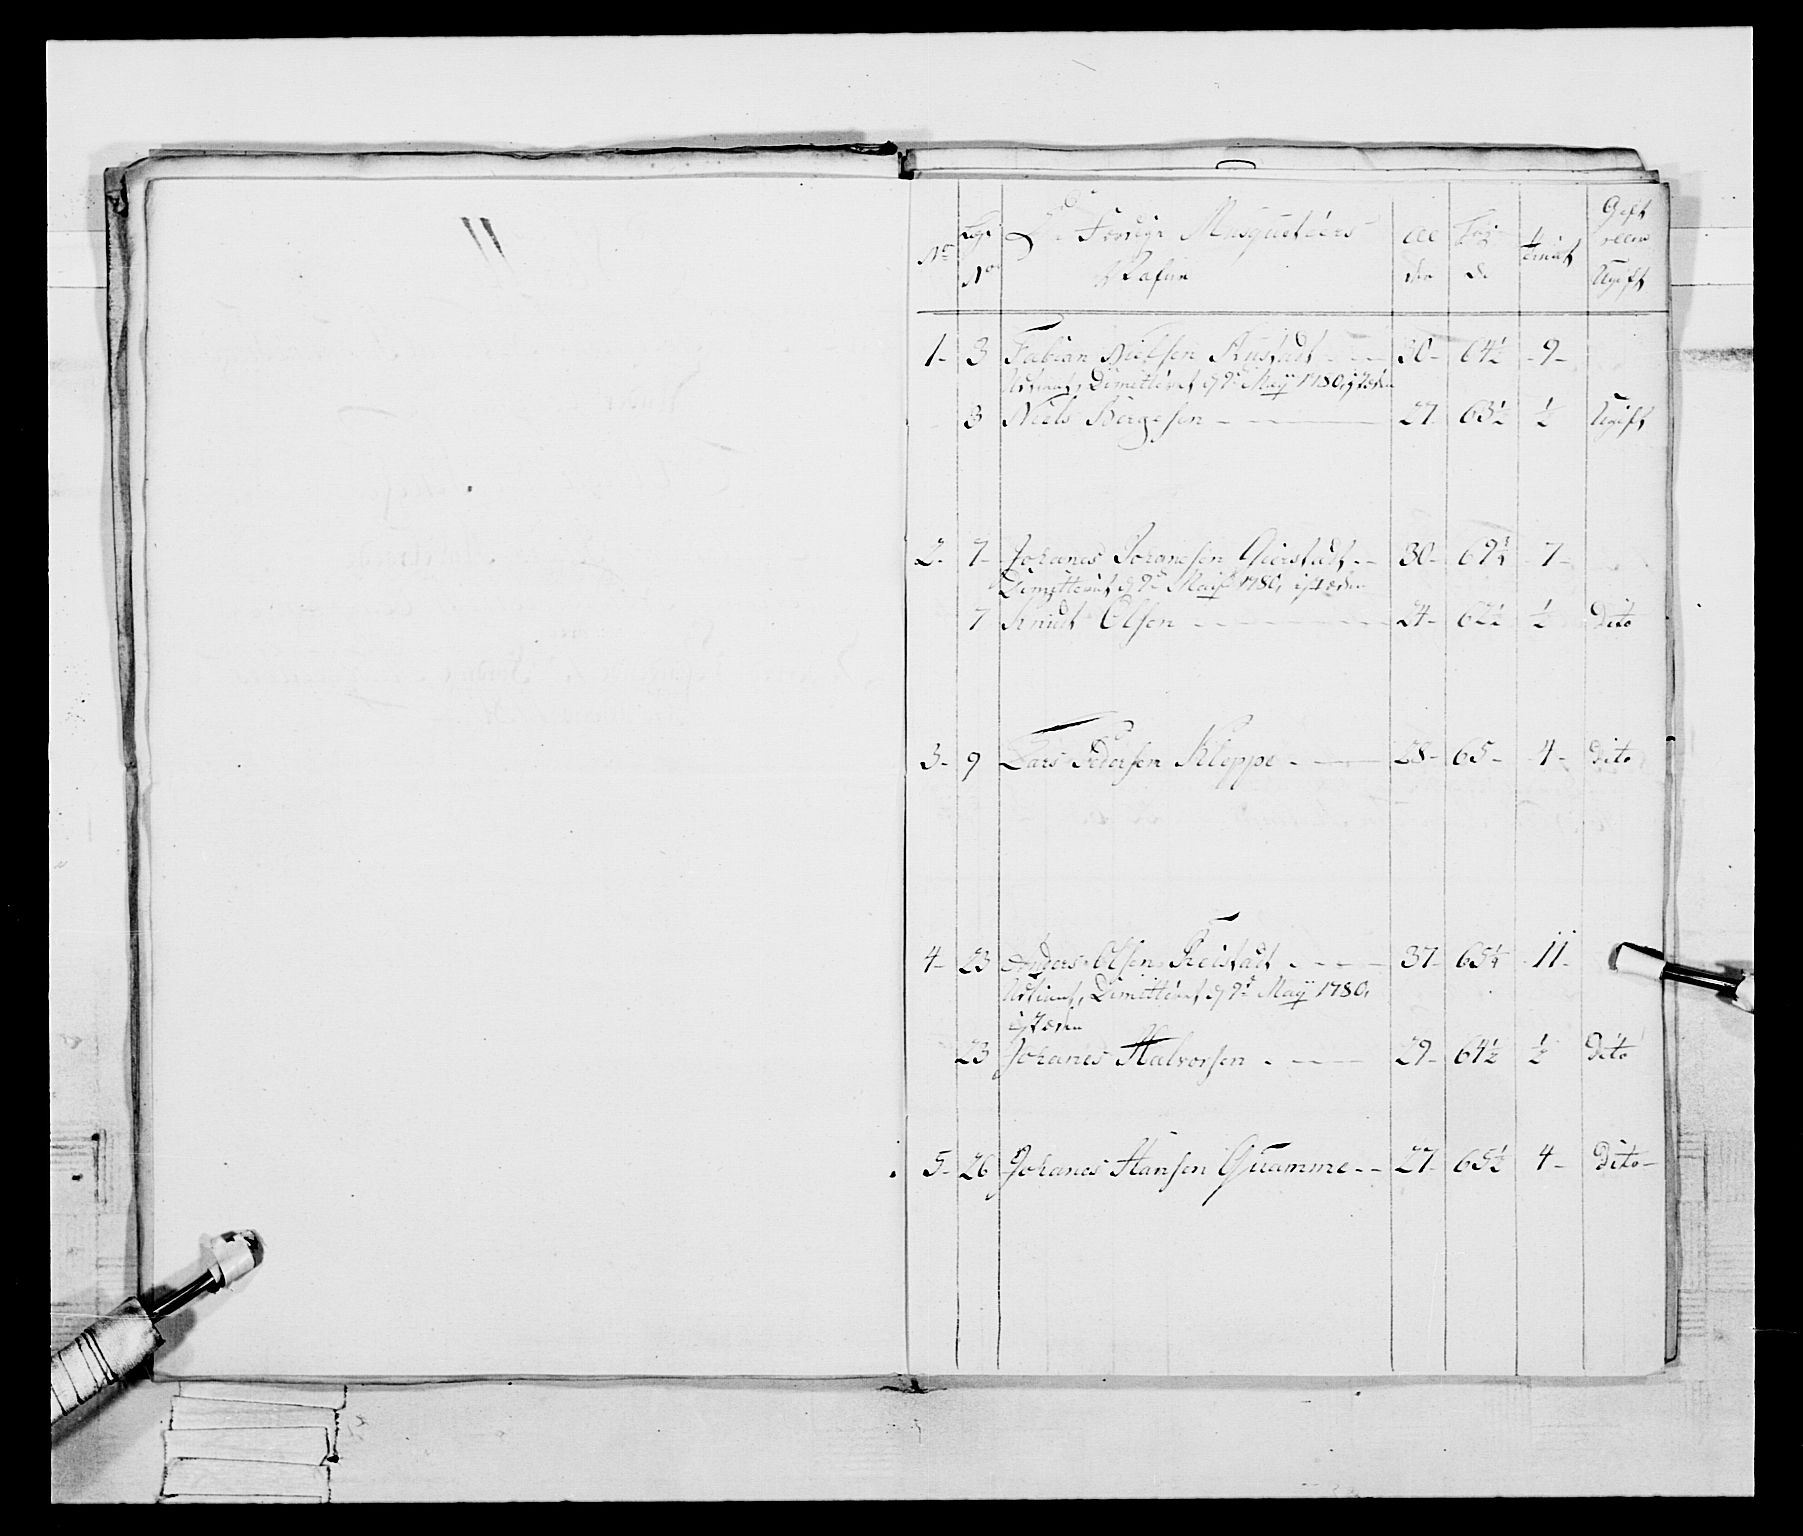 11
No Lægs No De Færdige Musqueteers Nafne Alder Høyde Tient Gift eller Ugift
1- 3 Fabian Nielsen Austadt - - - 30- 64½ - 9-
Udtient, Dimitteret d 9de Maÿ 1780, i steden
3 Niels Bergesen - - - 27 63½ ½ Ugift
2- 7- Johanes Johanesen Gierstadt - - 30- 69¼ - 7-
Dimitteret d 9de Maÿ 1780, i steden
7 Knudt Olsen - - - 24- 62½ ½ Dito
3- 9 Lars Pedersen Kloppe - - - 28- 65- - 4- Dito
4- 23 Anders Olsen Freistadt - - - 37- 65¼ - 11-
Udtient, Dimitteret d 9de Maÿ 1780,
i steden
23 Johanes Halvorsen - - - 29- 64½ ½ Dito
5- 26 Johanes Hansen Quamme - - 27- 65½ 4- Dito-